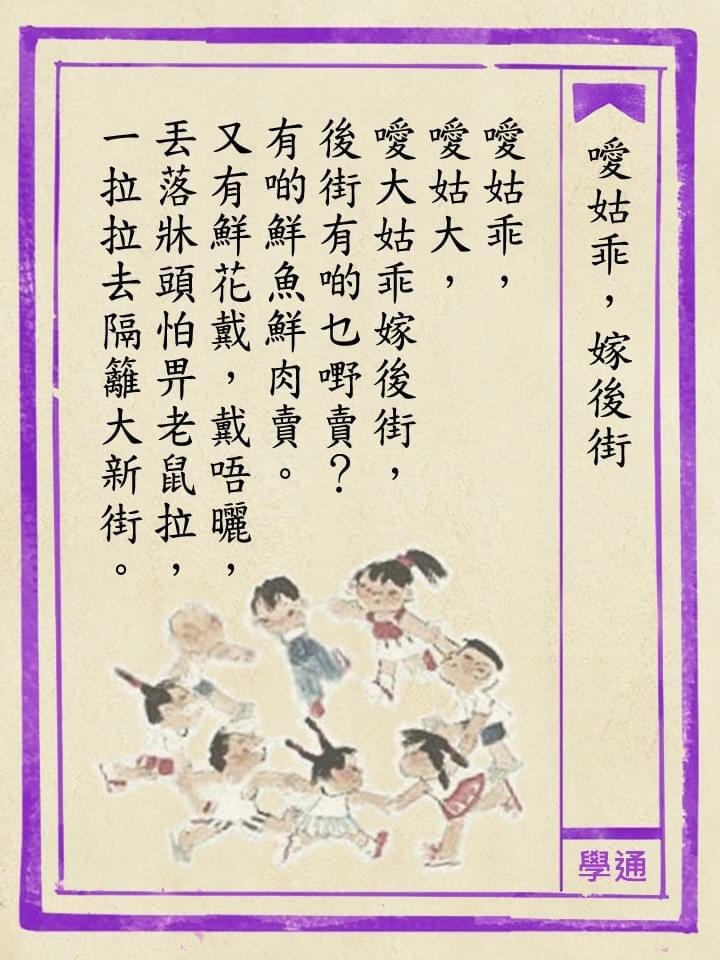 噯姑乖，嫁後街
噯姑乖，
噯姑大，
噯大姑乖嫁後街，
後街有啲乜嘢賣？
有啲鮮魚鮮肉賣。
又有鮮花戴，戴唔曬，
丟落牀頭怕畀老鼠拉，
一拉拉去隔籬大新街。
學通